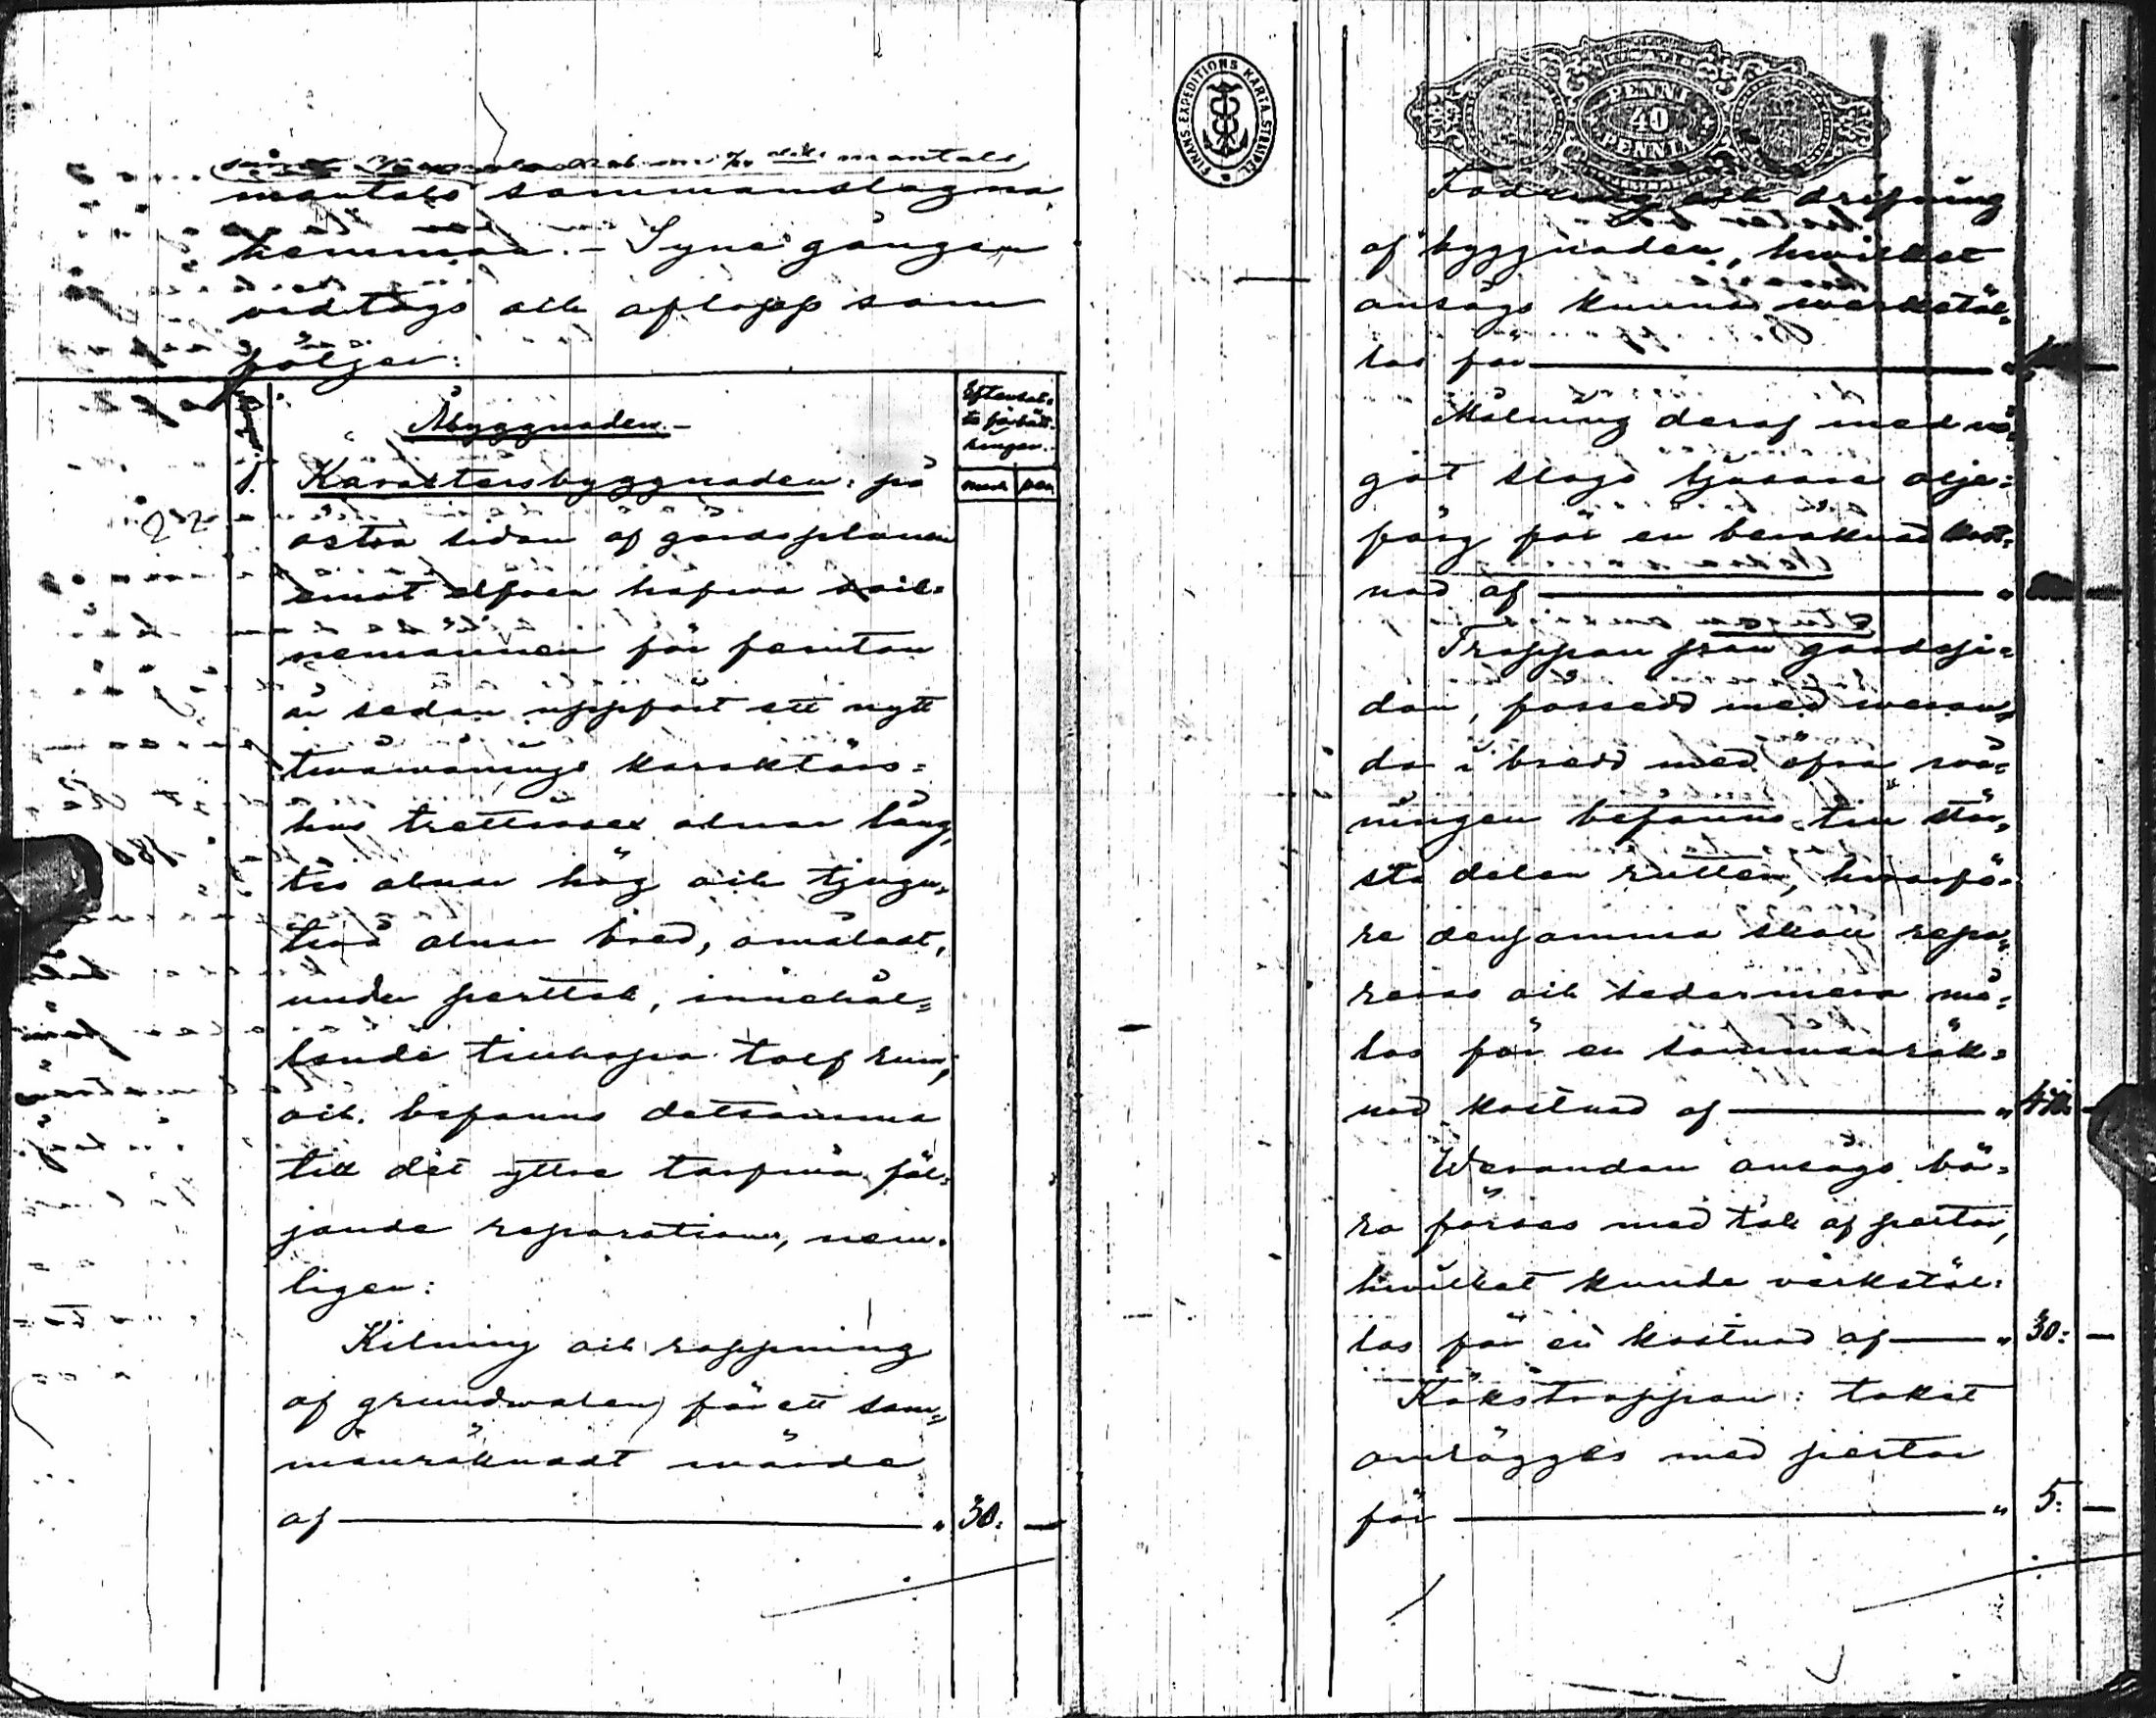 mantals
mantals sammanslagna
hemman. – Syne gången
vidtogs och aflopp som
följer:
Åbyggnaden. –
Eftersat-
ta förbätt-
ringar.
mark pen
1. Karaktersbyggnaden: på
östra sidan af gårdsplanen
emot elfven hafva
nemannen för femton
år sedan uppfört ett nytt
tvåvånings karaktärs=
hus trettiosex alnar lång,
tio alnar hög och tjugu-
två alnar bred, omåladt,
under perttak, innehål=
lande tillhopa tolf rum,
och befanns detsamma
till det yttre tarfva föl=
jande reparationer, nem-
ligen:
Kilning och rappning
af grundvalen, för ett sam=
manräknadt värde
af " 30: —
FINANS. EXPEDITIONS KARTA. STÄMPEL
PENNI
40
PENNIÄ
Fodring och drifning
af byggnaden, hvilket
ansågs kunna verkstäl=
las för "
Målning deraf med nå=
got slags ljusare olje=
färg för en beräknad kost=
nad af "
Trappan från gårdssi=
dan, försedd med veran=
da i bredd med öfra vå=
ningen befanns till stör=
sta delen rutten, hvarfö=
re densamma skall repa=
reras och sedermera må=
las för en sammanräk=
nad kostnad af "
Verandan ansågs bö=
ra förses med tak af pertor,
hvilket kunde verkstäl=
las för en kostnad af " 30: —
Kökstrappan: taket
omlägges med pertor
för " 5: —